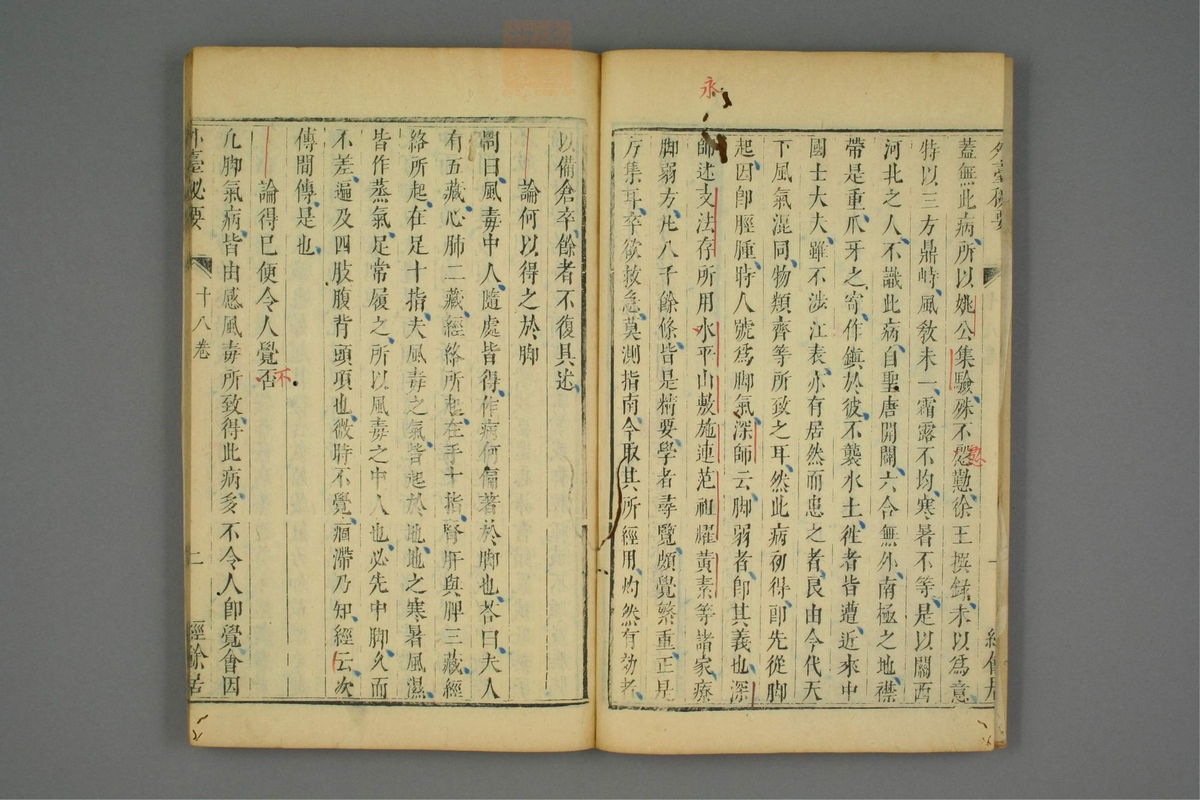 永
外臺秘要
蓋無此病所以姚公集驗殊不慇懃徐王撰錄未以為意
慇
特以三方鼎峙風教未一霜露不均寒暑不等是以關西
河北之人不識此病自聖唐開闢六合無外南極之地襟
帶是重爪牙之寄作鎮於彼不襲水土徃者皆遭近來中
國士大夫雖不涉江表亦有居然而患之者良由今代天
下風氣混同物類齊等所致之耳然此病初得即先從脚
起因即脛腫時人號為脚氣深師云脚弱者即其義也深
師述支法存所用永平山敷施連范祖耀黃素等諸家療
脚弱方凡八千餘條皆是精要學者尋覽頗覺繁重正是
方集耳卒欲救急莫測指南今取其所經用灼然有効者
以備倉卒餘者不復具述
論何以得之於脚
問曰風毒中人隨處皆得作病何偏著於脚也荅曰夫人
有五藏心肺二藏經絡所起在手十指腎肝與脾三藏經
絡所起在足十指夫風毒之氣皆起於地地之寒暑風濕
皆作蒸氣足常履之所以風毒之中人也必先中脚久而
不差遍及四肢腹背頭項也微時不覺痼滯乃知經云次
傳間傳是也
論得已便令人覺否
不
凡脚氣病皆由感風毒所致得此病多不令人即覺會因
外臺秘要 十八卷 二 經餘居